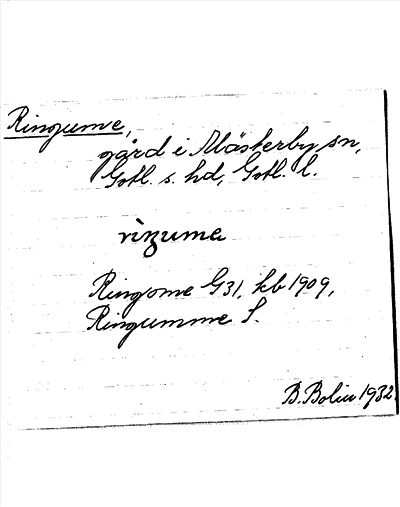 Ringume,
gård i Mästerby sn,
Gotl. s. hd, Gotl. l.
rìŋume
Ringome G31, kb 1909,
Ringumme S.
B. Bolin 1932.